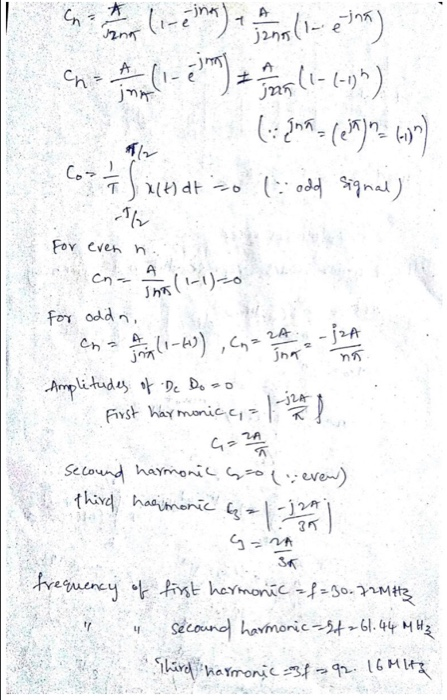 Cn = A/j2nπ (1-e^-jnπ) + A/j2nπ (1-e^-jnπ)
Cn = A/jnπ (1-e^-jnπ) = A/jnπ (1-(-1)^n)
(∵ e^jnπ = (e^jπ)^n = (-1)^n)
C0 = 1/T ∫_{-T/2}^{T/2} x(t) dt = 0 (∵ odd signal)
For even n.
Cn = A/jnπ (1-1) = 0
For odd n,
Cn = A/jnπ (1-(-1)), Cn = 2A/jnπ = -j2A/nπ
Amplitudes of Dc D0 = 0
First harmonic, C1 = |-j2A/π|
C1 = 2A/π
Secound harmonic C2 = 0 (∵ even)
third harmonic C3 = |-j2A/3π|
C3 = 2A/3π
frequency of first harmonic = f = 30.72MHz
" " secound harmonic = 2f = 61.44 MHz
Third harmonic = 3f = 92.16MHz